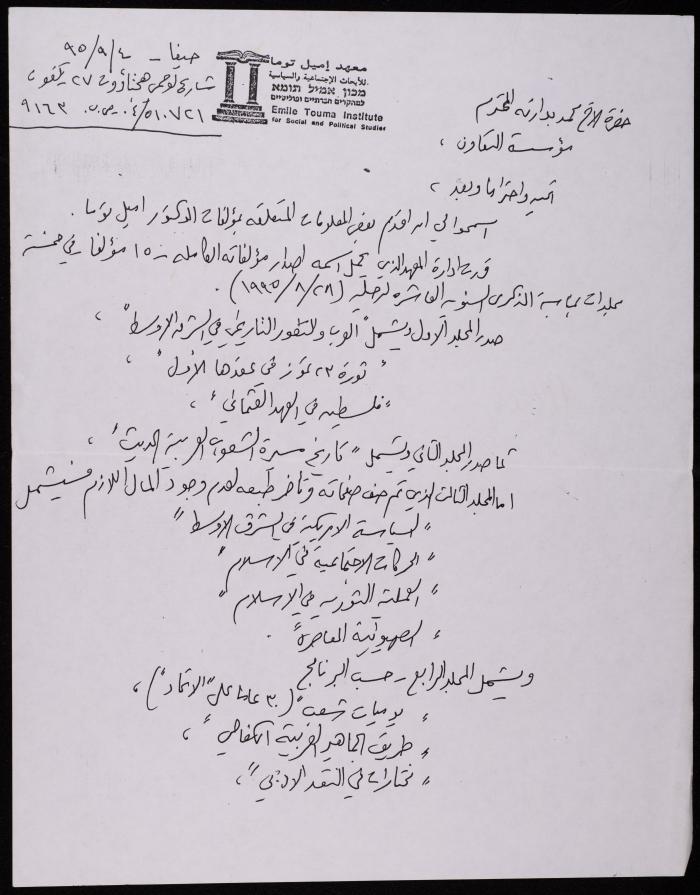 معهد إميل توما
للأبحاث الإجتماعية والسياسية
מכון אמיל תומא
למחקרים חברתיים ופוליטיים
Emile Touma Institute
for Social and Political Studies
حيفا - ٩٥/٩/٤
شارع لوحمي هجتاؤوت ٢٧
٠٤/٥١٠٧٢١ ص.ب. ٩١٦٣
حضرة الأخ محمد بدارنه المحترم
مؤسسة التعاون،
تحيه واحتراما وبعد،
اسمحوا لي ان اقدم بعض المعلومات المتعلقه بمؤلفات الدكتور اميل توما.
قررت ادارة المعهد الذي يحمل اسمه اصدار مؤلفاته الكامله - ١٥ مؤلفا في خمسة
مجلدات بمناسبة الذكرى السنويه العاشره لرحيله (١٩٩٥/٨/٢٨).
صدر المجلد الاول ويشمل "العرب والتطور التاريخي في الشرق الاوسط"،
"ثورة ٢٣ تموز في عقدها الأول"،
"فلسطين في العهد العثماني"،
كما صدر المجلد الثاني ويشمل "تاريخ مسيرة الشعوب العربية الحديث"،
اما المجلد الثالث الذي تم صف صفحاته وتأخر طبعه لعدم وجود المال اللازم فسيشمل
"السياسة الامريكية في الشرق الاوسط"
"الحركات الاجتماعية في الاسلام"
"العملية الثورية في الاسلام"
"الصهيونية المعاصرة".
ويشمل المجلد الرابع - حسب البرنامج
"يوميات شعب" (٣٠ عاما على "الاتحاد")،
"طريق الجماهير العربية الكفاحي"،
"مختارات في النقد الادبي"،